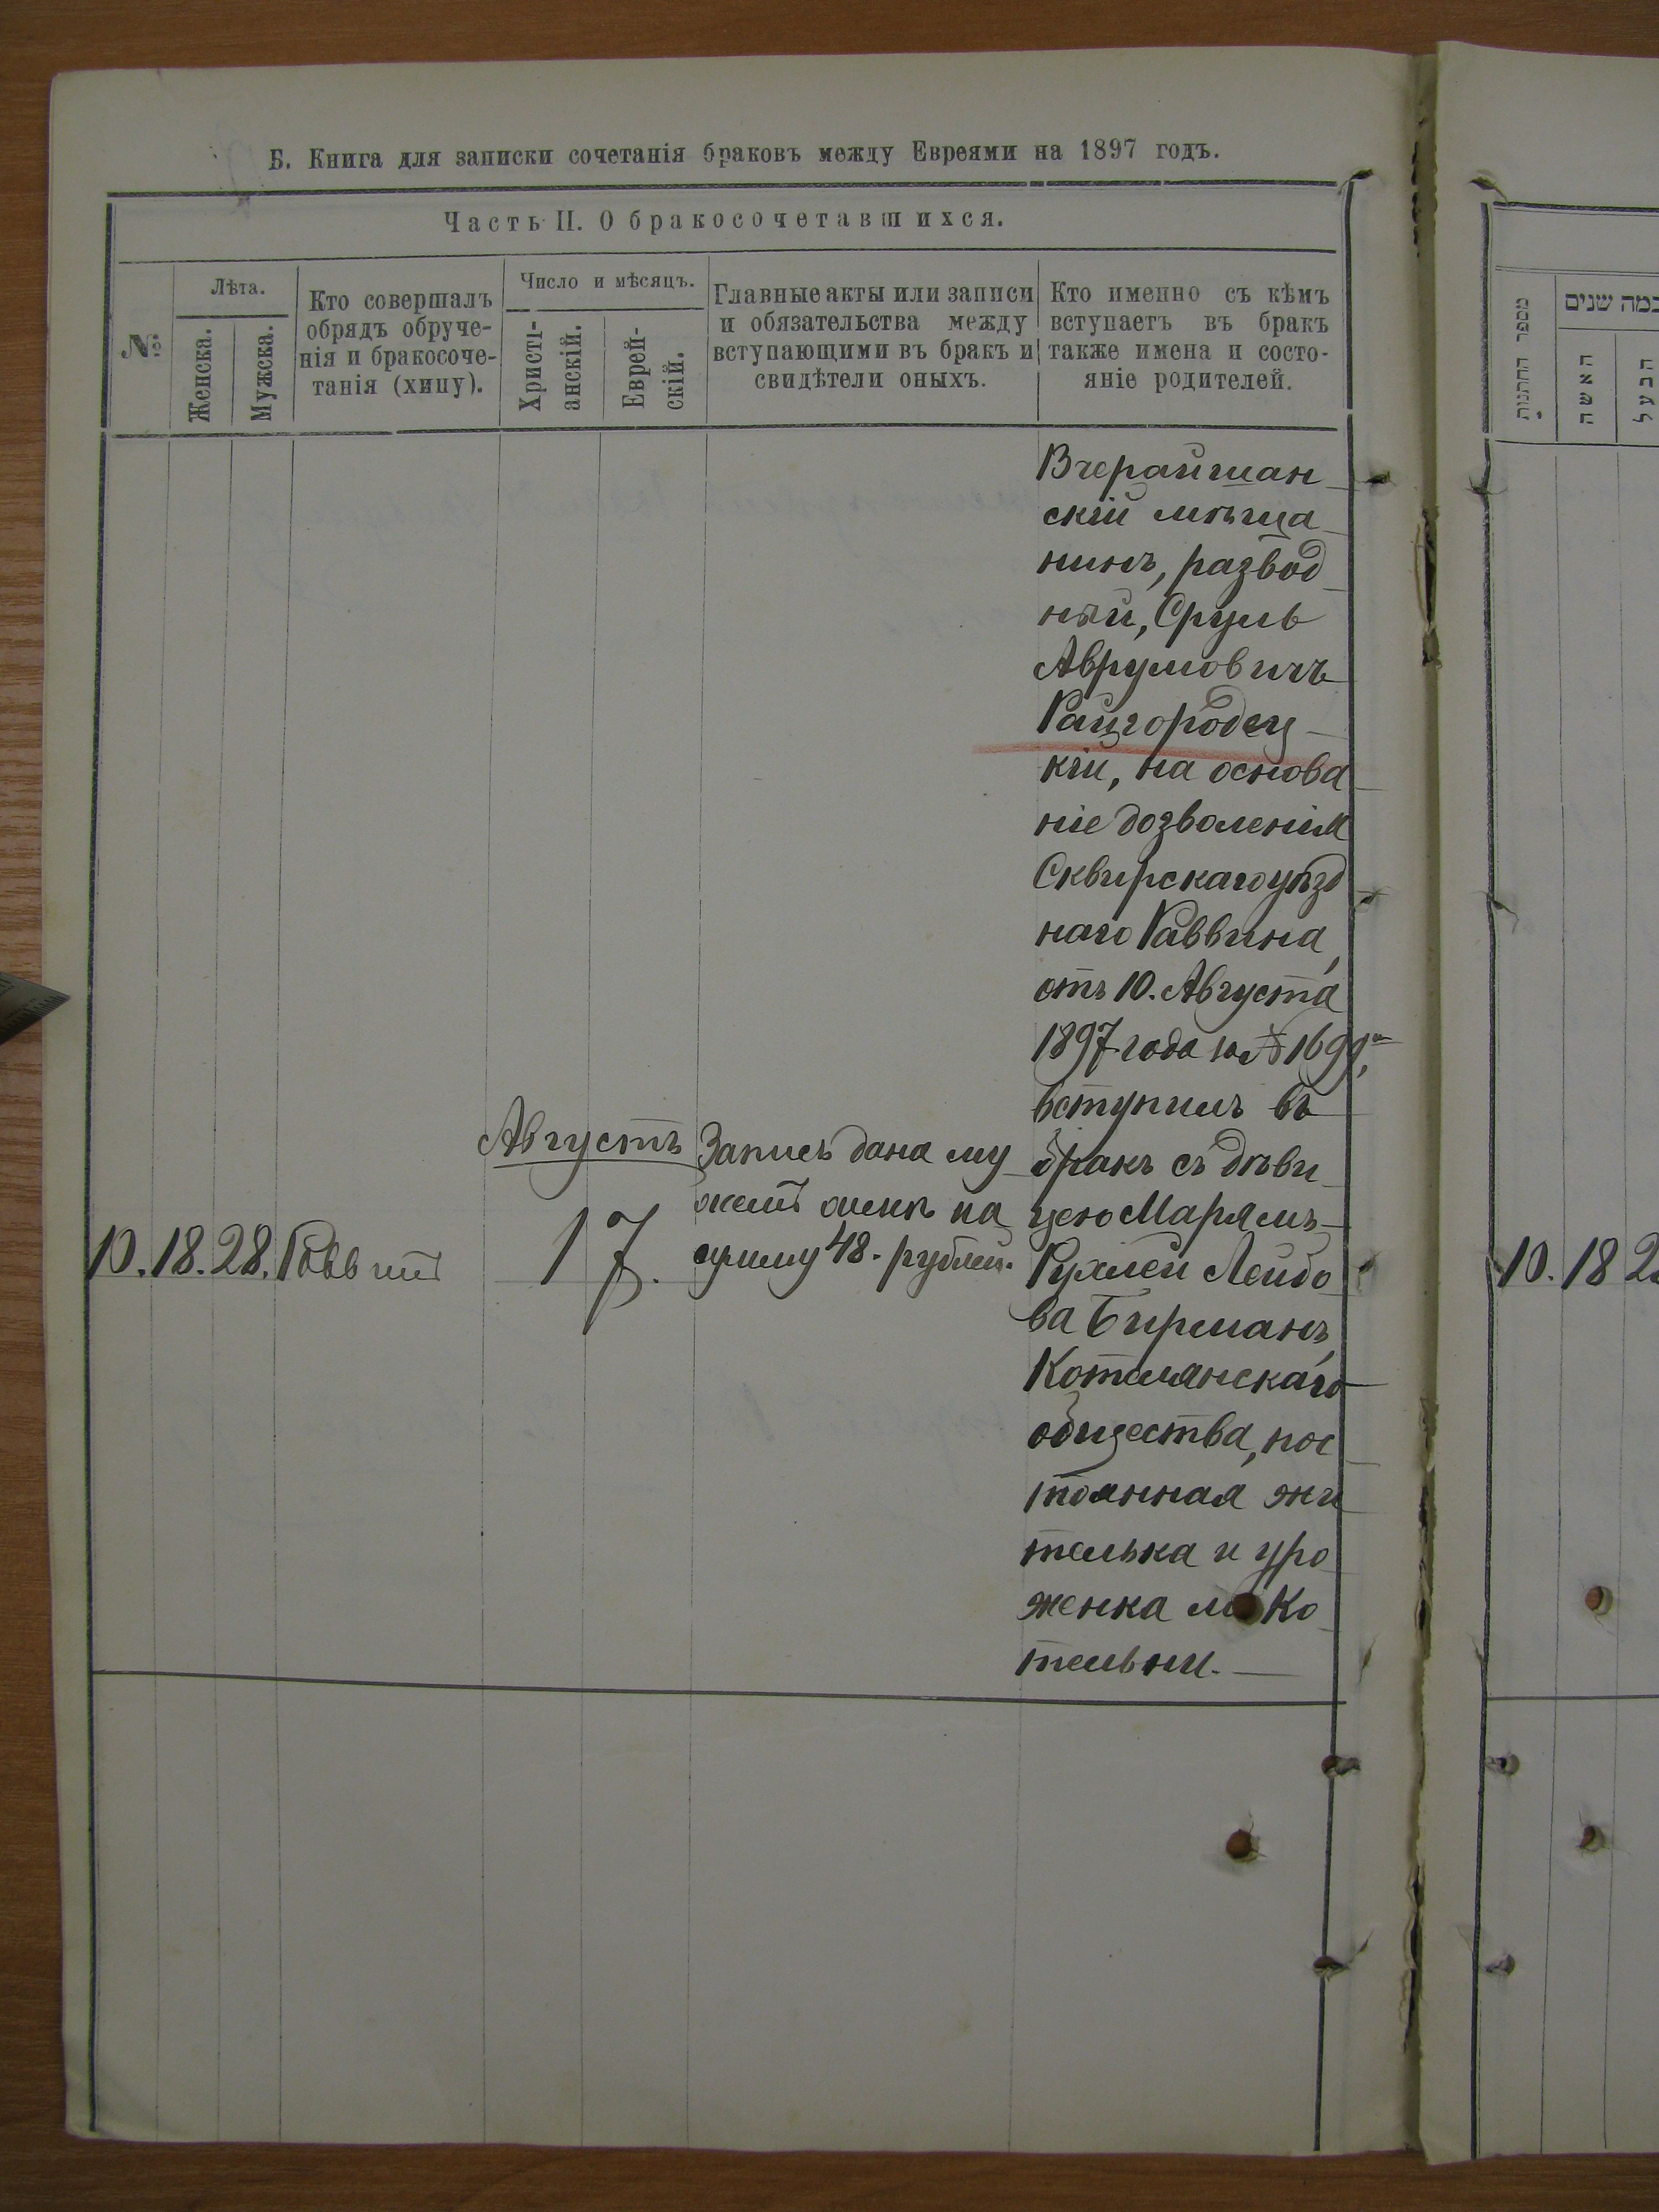 Б. Книга для записки сочетанія браковъ между Евреями на 1897 годъ.
Часть II. О бракосочетавшихся.
№
Лѣта.
Женска.
Мужска.
Кто совершалъ
обрядъ обруче-
нія и бракосоче-
танія (хипу).
Число и мѣсяцъ.
Христі-
анскій.
Еврей-
скій.
Главные акты или записи
и обязательства между
вступающими въ бракъ и
свидѣтели оныхъ.
Кто именно съ кѣмъ
вступаетъ въ бракъ
также имена и состо-
яніе родителей.
10. 18. 28. Раввинъ
Августъ
17.
Запись дана му
жемъ женѣ на
сумму 48. рублей.
Вчерайшан
скій мѣща
нинъ, развод
ный, Сруль
Аврумовичъ
Райгородец
кій, на основа
ніе дозволенія
Сквирскаго уѣзд
наго Раввина,
отъ 10. Августа
1897 года за № 1699,
вступилъ въ
бракъ съ дѣви
цею Марьямъ
Рухлей Лейбо
ва Бирманъ,
Котелянскаго
общества, пос
тоянная жи
телька и уро
женка м. Ко
тельни.
מספר החתונות
כמה שנים
האשה
הבעל
10. 18